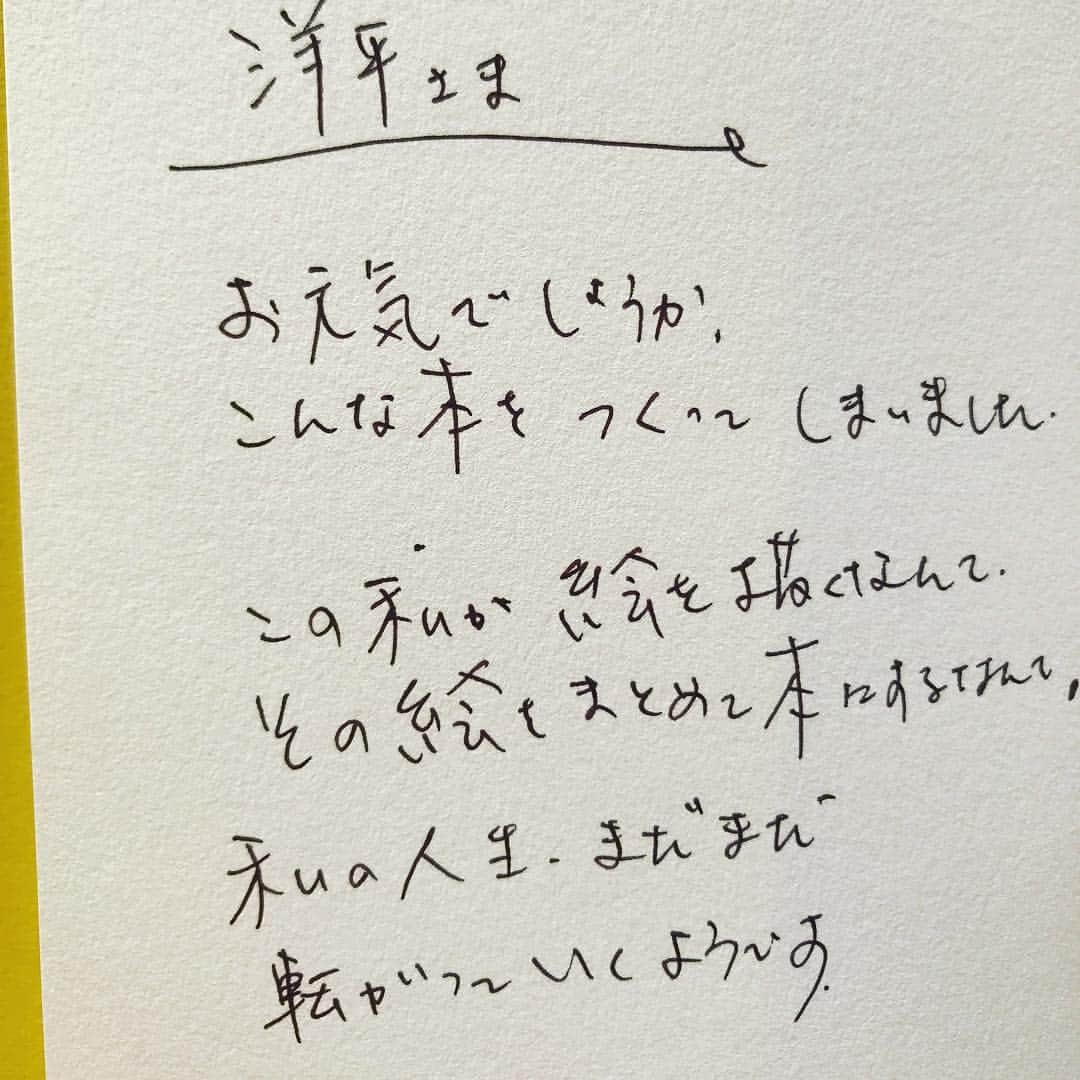 洋平さま
お元気でしょうか、
こんな本をつくってしまいました.
この私が絵を描くなんて.
その絵をまとめて本にするなんて,
私の人生.まだまだ
転がっていくようです.